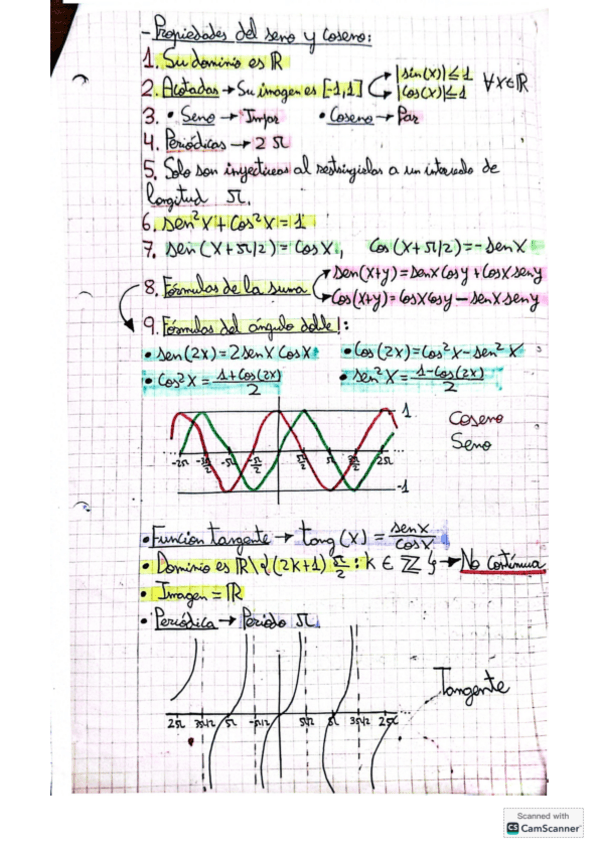 - Propiedades del seno y coseno:
1. Su dominio es ℝ
2. Acotadas → Su imagen es [-1,1] → |sin(x)| ≤ 1 ∀x∈ℝ
→ |cos(x)| ≤ 1
3. • Seno → Impar • Coseno → Par
4. Periódicas → 2π
5. Solo son inyectivas al restringirlas a un intervalo de
longitud π.
6. sen²x + cos²x = 1
7. sen(x+π/2) = cosx, cos(x+π/2) = -senx
8. Fórmulas de la suma → sen(x+y) = senx cosy + cosx seny
→ cos(x+y) = cosx cosy - senx seny
9. Fórmulas del ángulo doble!:
• sen(2x) = 2senx cosx • cos(2x) = cos²x - sen²x
• cos²x = 1+cos(2x)/2 • sen²x = 1-cos(2x)/2
1
Coseno
Seno
-2π -3π/2 -π -π/2 π/2 π 3π/2 2π
-1
• Funcion tangente → tang(x) = senx/cosx
• Dominio es ℝ\{(2k+1) π/2 : k ∈ ℤ} → No contínua
• Imagen = ℝ
• Periódica → Periodo π
Tangente
2π 3π/2 π -π/2 π/2 π 3π/2 2π
Scanned with
CS CamScanner